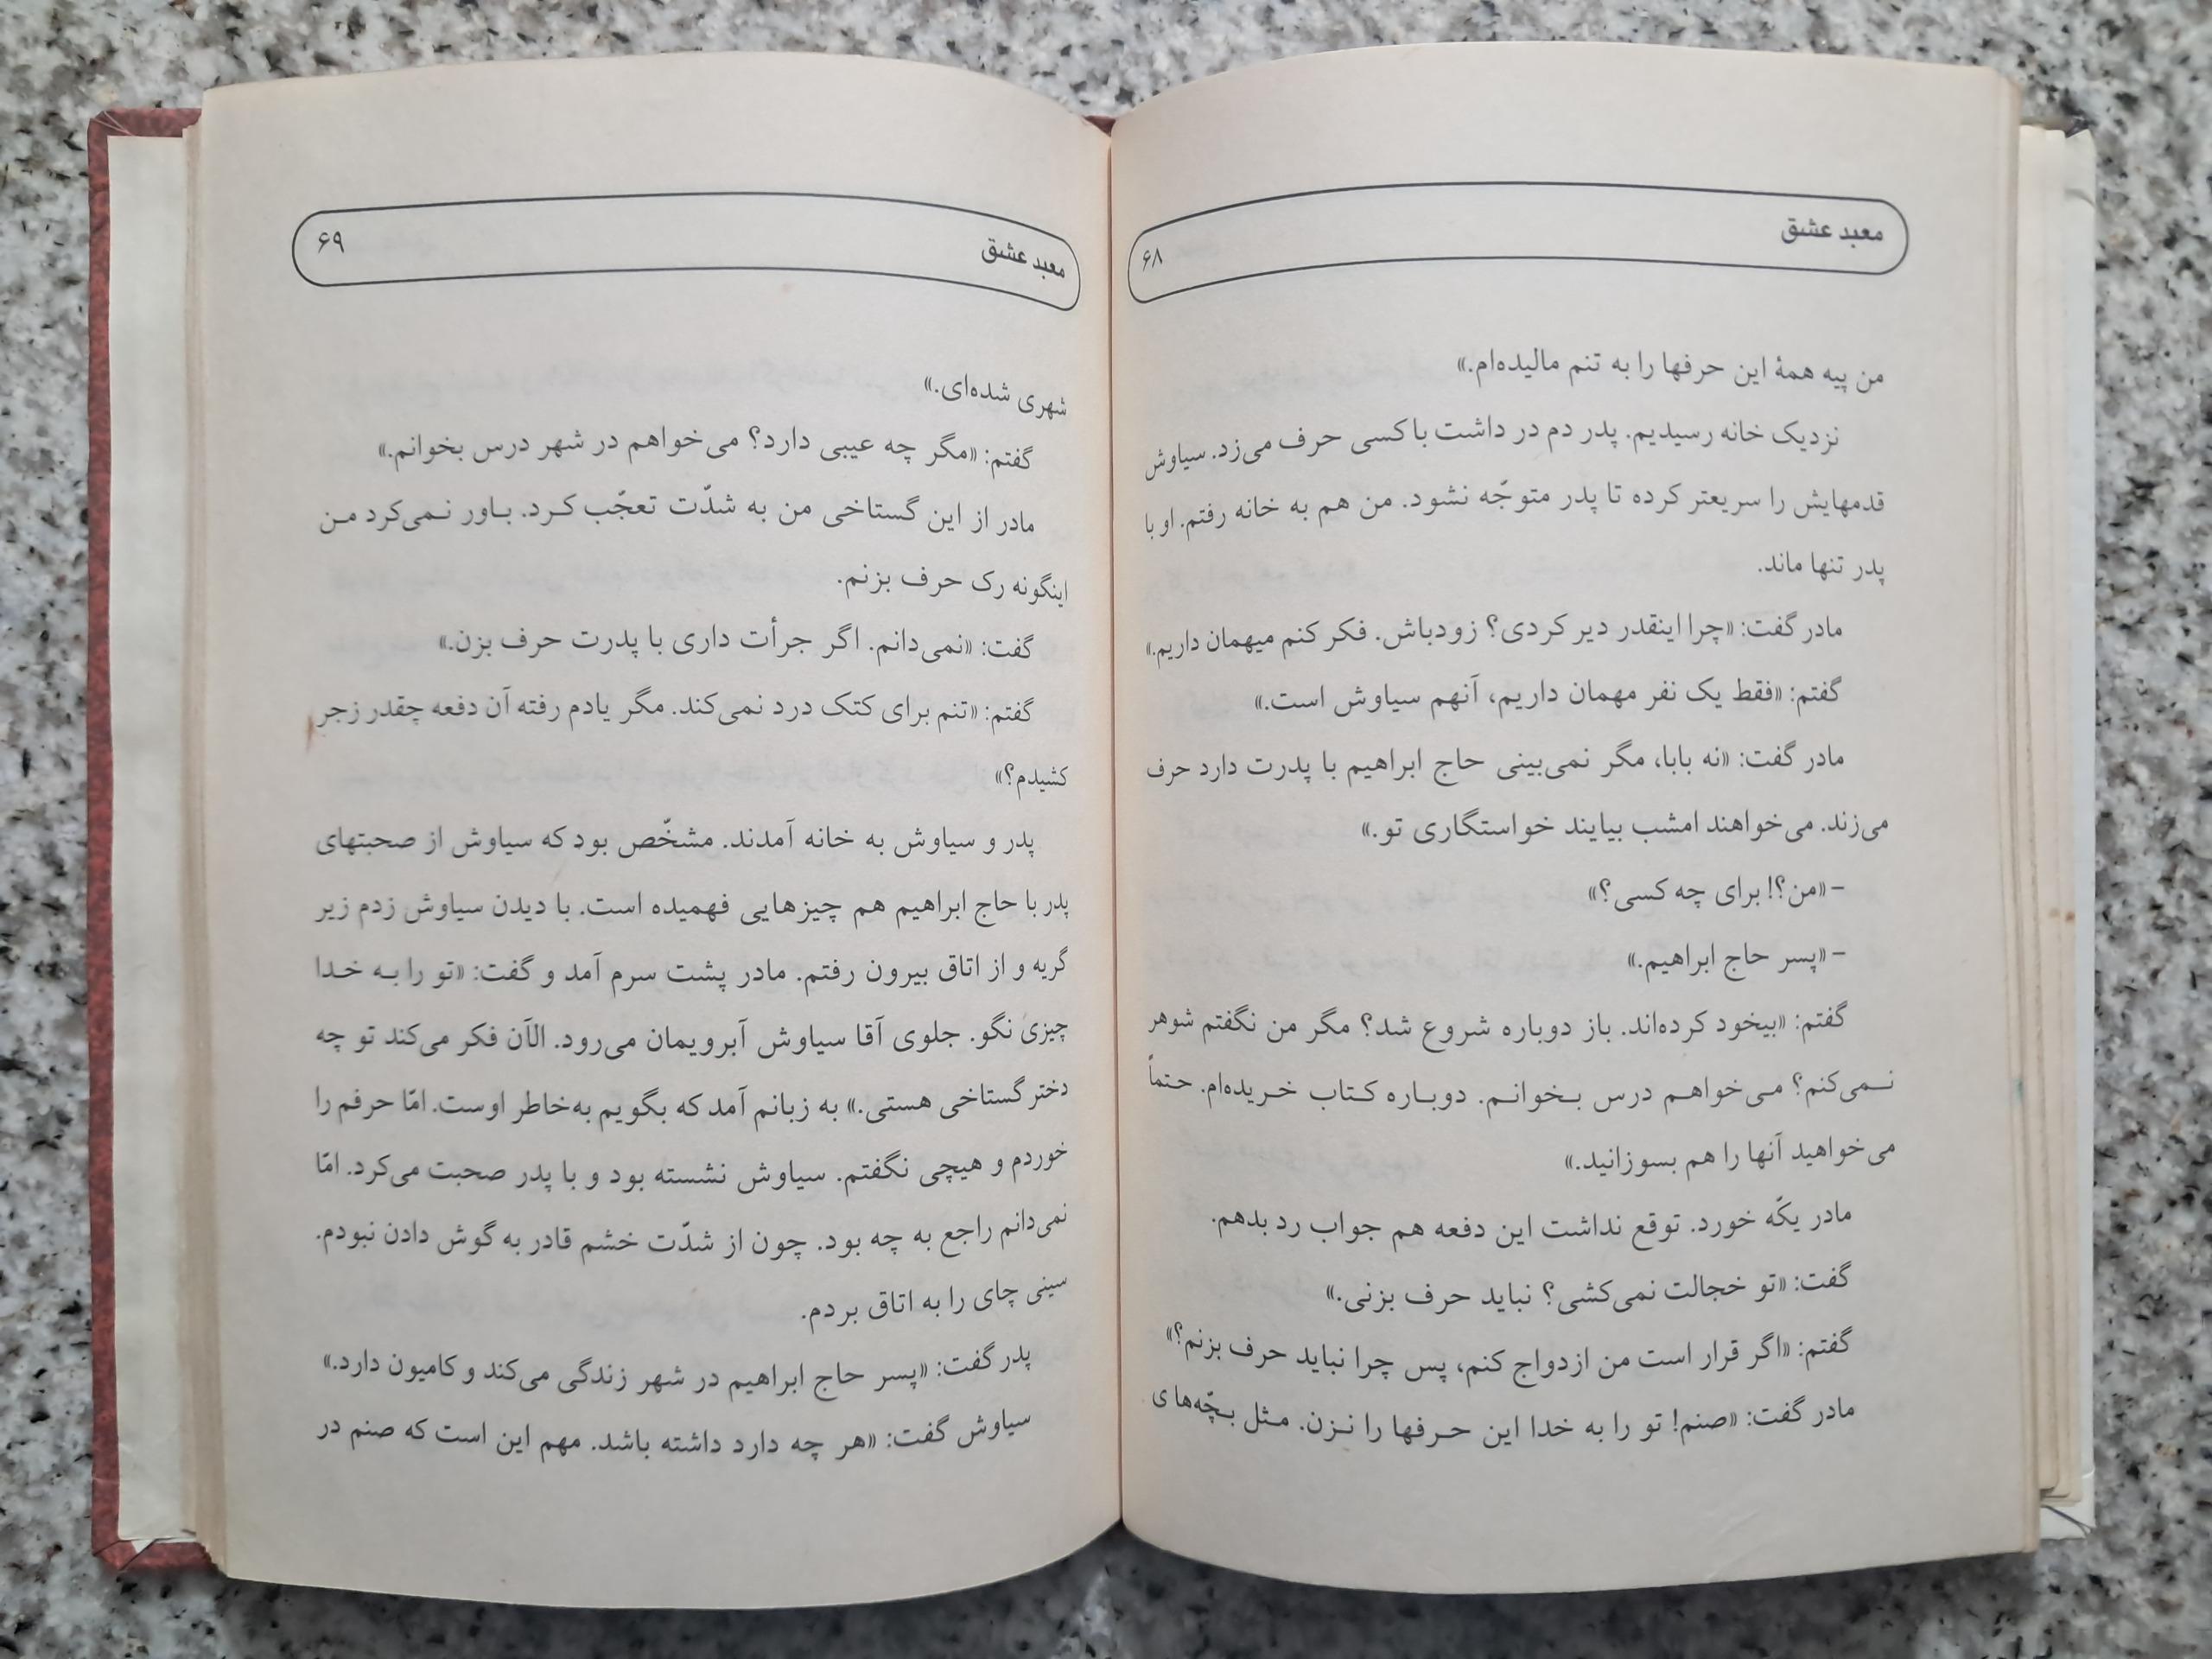 معبد عشق ۶۸
من پیه همۀ این حرفها را به تنم مالیده‌ام.»
نزدیک خانه رسیدیم. پدر دم در داشت با کسی حرف می‌زد. سیاوش
قدمهایش را سریعتر کرده تا پدر متوجّه نشود. من هم به خانه رفتم. او با
پدر تنها ماند.
مادر گفت: «چرا اینقدر دیر کردی؟ زودباش. فکر کنم میهمان داریم.»
گفتم: «فقط یک نفر مهمان داریم، آنهم سیاوش است.»
مادر گفت: «نه بابا، مگر نمی‌بینی حاج ابراهیم با پدرت دارد حرف
می‌زند. می‌خواهند امشب بیایند خواستگاری تو.»
- «من؟! برای چه کسی؟»
- «پسر حاج ابراهیم.»
گفتم: «بیخود کرده‌اند. باز دوباره شروع شد؟ مگر من نگفتم شوهر
نـمی‌کنم؟ مـی‌خواهـم درس بـخوانـم. دوبـاره کـتاب خـریده‌ام. حـتماً
می‌خواهید آنها را هم بسوزانید.»
مادر یکّه خورد. توقع نداشت این دفعه هم جواب رد بدهم.
گفت: «تو خجالت نمی‌کشی؟ نباید حرف بزنی.»
گفتم: «اگر قرار است من ازدواج کنم، پس چرا نباید حرف بزنم؟»
مادر گفت: «صنم! تو را به خدا این حـرفها را نـزن. مـثل بـچّه‌های
معبد عشق ۶۹
شهری شده‌ای.»
گفتم: «مگر چه عیبی دارد؟ می‌خواهم در شهر درس بخوانم.»
مادر از این گستاخی من به شدّت تعجّب کـرد. بـاور نـمی‌کرد مـن
اینگونه رک حرف بزنم.
گفت: «نمی‌دانم. اگر جرأت داری با پدرت حرف بزن.»
گفتم: «تنم برای کتک درد نمی‌کند. مگر یادم رفته آن دفعه چقدر زجر
کشیدم؟»
پدر و سیاوش به خانه آمدند. مشخّص بود که سیاوش از صحبتهای
پدر با حاج ابراهیم هم چیزهایی فهمیده است. با دیدن سیاوش زدم زیر
گریه و از اتاق بیرون رفتم. مادر پشت سرم آمد و گفت: «تو را بـه خـدا
چیزی نگو. جلوی آقا سیاوش آبرویمان می‌رود. الآن فکر می‌کند تو چه
دختر گستاخی هستی.» به زبانم آمد که بگویم به‌خاطر اوست. امّا حرفم را
خوردم و هیچی نگفتم. سیاوش نشسته بود و با پدر صحبت می‌کرد. امّا
نمی‌دانم راجع به چه بود. چون از شدّت خشم قادر به گوش دادن نبودم.
سینی چای را به اتاق بردم.
پدر گفت: «پسر حاج ابراهیم در شهر زندگی می‌کند و کامیون دارد.»
سیاوش گفت: «هر چه دارد داشته باشد. مهم این است که صنم در